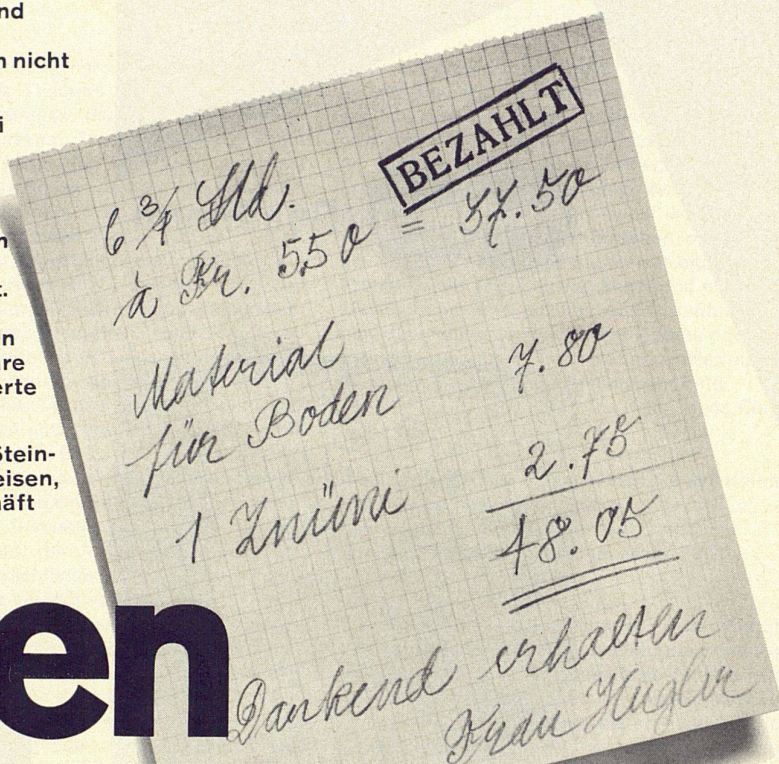 nd
n nicht
i
n
t.
in
re
erte
Stein-
eisen,
häft
en
BEZAHLT
6 3/4 Std.
à Fr. 5.50 = 37.50
Material
für Boden 7.80
1 Znüni 2.75
48.05
Dankend erhalten
Frau Hugler